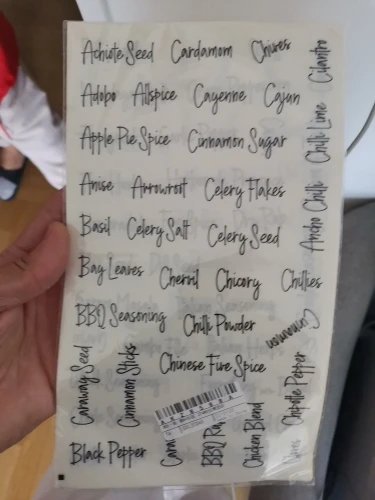 Achiote Seed Cardamom Chives
Cilantro
Adobo Allspice Cayenne Cajun
Chili Lime
Apple Pie Spice Cinnamon Sugar
Anise Arrowroot Celery Flakes
Ancho Chili
Basil Celery Salt Celery Seed
Bay Leaves Chervil Chicory Chillies
BBQ Seasoning Chili Powder
Cinnamon
Caraway Seed
Cinnamon Sticks
Chinese Five Spice
Chipotle Pepper
Black Pepper
BBQ
Chicken Blend